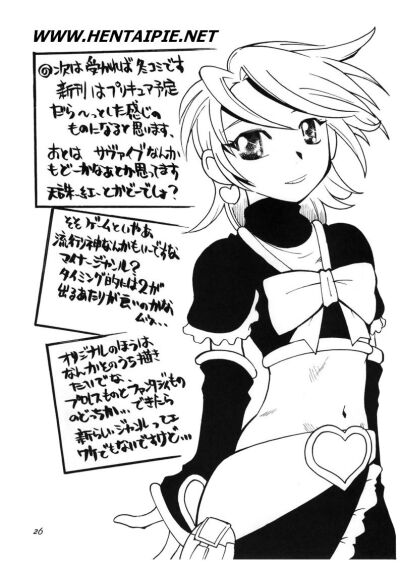 WWW.HENTAIPIE.NET
◎次は受かれば冬コミです
新刊はプリキュア予定
だら〜っとした感じの
ものになると思います、
あとは サヴァイブなんか
もどーかなあとか思ってます
天誅・紅・とかどーでしょ?
そそ ゲームといやあ
流行り神なんかもいーですな
マイナージャンル?
タイミング的には2が
出るあたりが良いのかな
ムゥ…
オリジナルのほうは、
なんかそのうち描き
たいでな、
プロレスものとファンタジィもの
のどっちか…できたら
新らしいジャンルってェ
ワケでもないですけど…
26